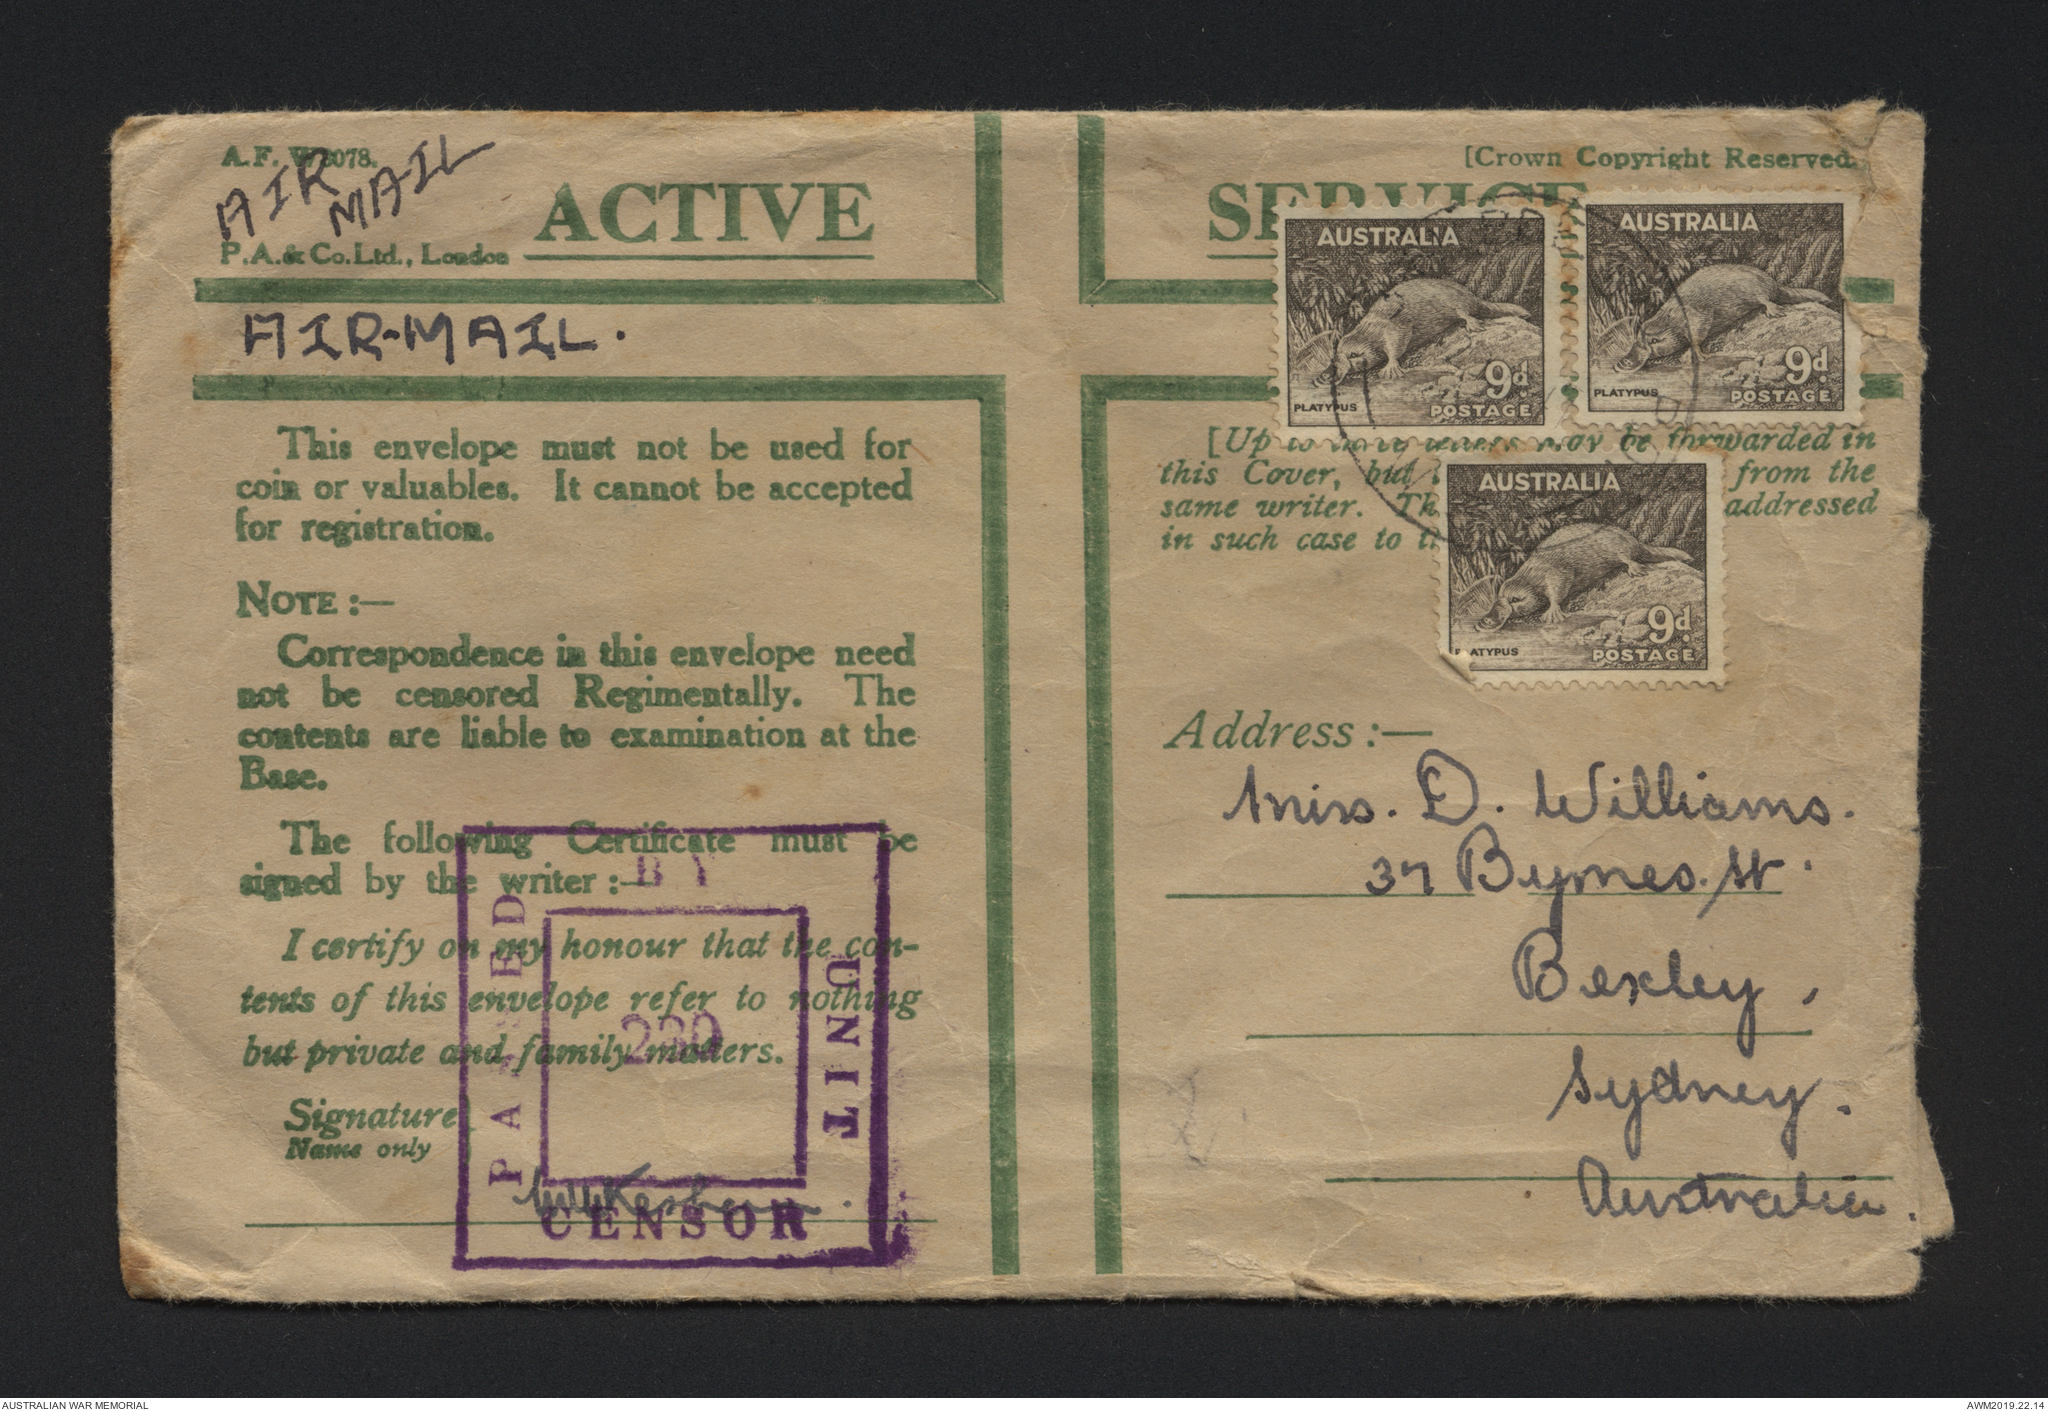 A.F. W3078.
[Crown Copyright Reserved.
AIR
MAIL
ACTIVE
P.A.& Co.Ltd., London
AIR-MAIL.
This envelope must not be used for
coin or valuables. It cannot be accepted
for registration.
NOTE :—
Correspondence in this envelope need
not be censored Regimentally. The
contents are liable to examination at the
Base.
The following Certificate must be
signed by the writer :—
I certify on my honour that the con-
tents of this envelope refer to nothing
but private and family matters.
Signature
Name only
PASSED
BY
UNIT
CENSOR
SERVICE
AUSTRALIA
PLATYPUS
9d.
POSTAGE
AUSTRALIA
PLATYPUS
9d.
POSTAGE
[Up to three letters may be forwarded in
this Cover, but from the
same writer. addressed
in such case to
AUSTRALIA
PLATYPUS
9d.
POSTAGE
Address :—
Miss. D. Williams.
37 Byrnes. St.
Bexley,
Sydney.
Australia.
AUSTRALIAN WAR MEMORIAL
AWM2019.22.14